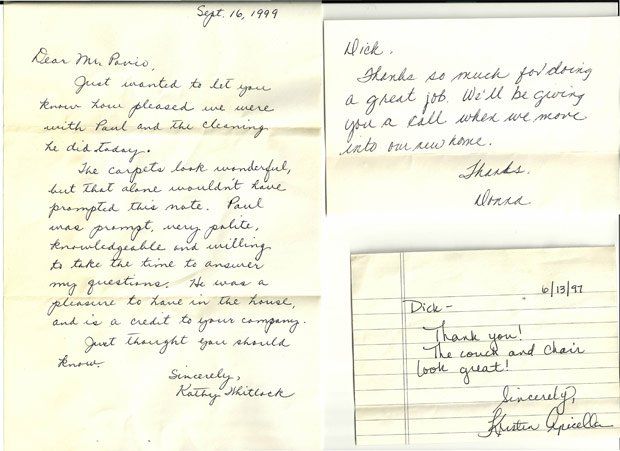 Sept. 16, 1999
Dear Mr. Pavio,
Just wanted to let you
know how pleased we were
with Paul and the cleaning
he did today.
The carpets look wonderful,
but that alone wouldn't have
prompted this note. Paul
was prompt, very polite,
knowledgeable and willing
to take the time to answer
my questions. He was a
pleasure to have in the house,
and is a credit to your company.
Just thought you should
know.
Sincerely,
Kathy Whitlock
Dick,
Thanks so much for doing
a great job. We'll be giving
you a call when we move
into our new home.
Thanks,
Donna
6/13/97
Dick-
Thank you!
The couch and chair
look great!
Sincerely,
Kristen Apicella